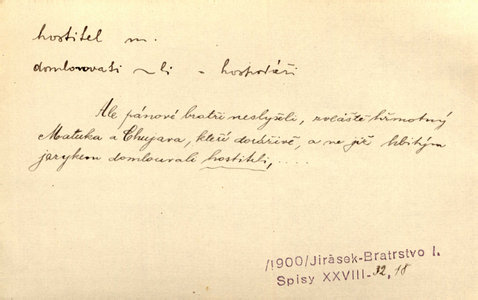 hostitel m.
domlouvati ~li - hospodáři
Ale pánové bratři neslyšeli, zvláště hřmotný
Matuka a Chujava, kteří doráživě, a ne již hbitým
jazykem domlouvali hostiteli, ....
/1900/Jirásek-Bratrstvo I.
Spisy XXVIII-32,18